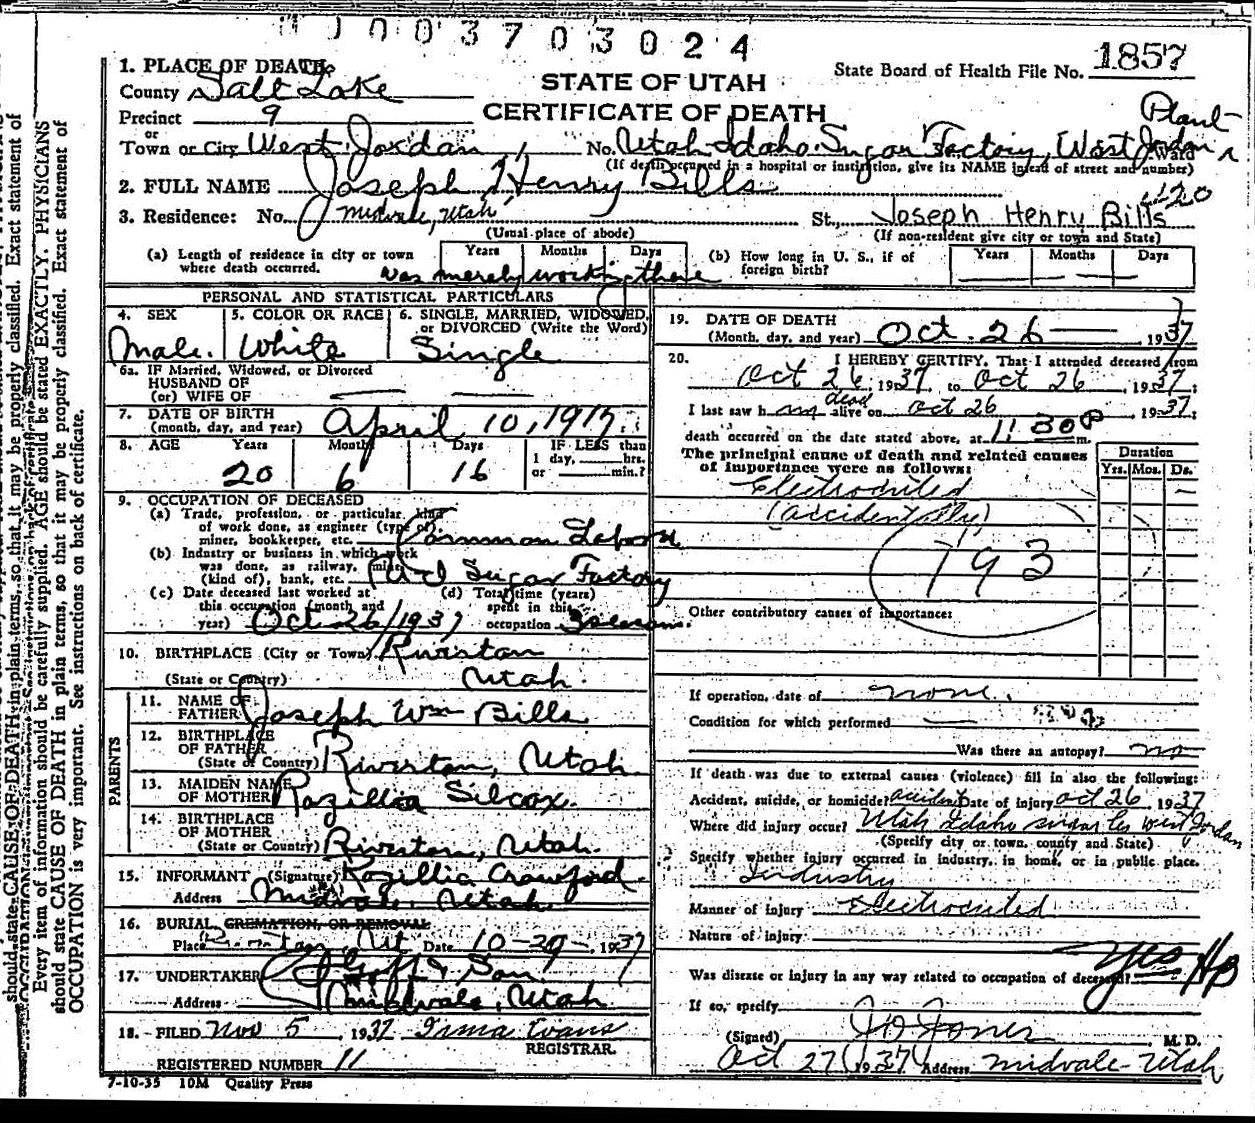 003703024
1857
State Board of Health File No.
STATE OF UTAH
CERTIFICATE OF DEATH
1. PLACE OF DEATH
County Salt Lake
Precinct 9
or
Town or City West Jordan, No. Utah-Idaho Sugar Factory, West Jordan Plant Ward
(If death occurred in a hospital or institution, give its NAME instead of street and number)
2. FULL NAME Joseph Henry Bills
3. Residence: No. Midvale, Utah St., Joseph Henry Bills
(Usual place of abode) (If non-resident give city or town and State)
(a) Length of residence in city or town where death occurred. Years Months Days
was merely working there
(b) How long in U. S., if of foreign birth? Years Months Days
PERSONAL AND STATISTICAL PARTICULARS
4. SEX Male.
5. COLOR OR RACE White
6. SINGLE, MARRIED, WIDOWED, or DIVORCED (Write the Word) Single
6a. IF Married, Widowed, or Divorced
HUSBAND OF
(or) WIFE OF
7. DATE OF BIRTH
(month, day, and year) April 10, 1917.
8. AGE Years Months Days IF LESS than
20 6 16 1 day, hrs.
or min.?
9. OCCUPATION OF DECEASED
(a) Trade, profession, or particular kind
of work done, as engineer (type of),
miner, bookkeeper, etc. Common Laborer
(b) Industry or business in which work
was done, as railway, mine
(kind of), bank, etc. U & I Sugar Factory
(c) Date deceased last worked at
this occupation (month and
year) Oct-26/1937
(d) Total time (years)
spent in this
occupation 3 seasons.
10. BIRTHPLACE (City or Town) Riverton
(State or Country) Utah.
PARENTS
11. NAME OF
FATHER Joseph Wm Bills
12. BIRTHPLACE
OF FATHER
(State or Country) Riverton, Utah.
13. MAIDEN NAME
OF MOTHER Rozillia Silcox.
14. BIRTHPLACE
OF MOTHER
(State or Country) Riverton, Utah.
15. INFORMANT (Signature) Rozillia Crawford
Address Midvale, Utah.
16. BURIAL, CREMATION, OR REMOVAL
Place Riverton, Ut Date 10-29-, 1937
17. UNDERTAKER Goff & Son
Address Midvale, Utah
18. FILED Nov 5, 1937 Irma Evans
REGISTRAR.
REGISTERED NUMBER 11
7-10-35 10M Quality Press
19. DATE OF DEATH
(Month, day, and year) Oct. 26 1937
20. I HEREBY CERTIFY, That I attended deceased from
Oct 26, 1937, to Oct 26, 1937;
I last saw him dead alive on Oct 26, 1937;
death occurred on the date stated above, at 11:30 P m.
The principal cause of death and related causes
of importance were as follows:
Duration
Yrs. Mos. Ds.
Electrocuted
(accidentally)
193
Other contributory causes of importance:
If operation, date of none.
Condition for which performed
Was there an autopsy? no
If death was due to external causes (violence) fill in also the following:
Accident, suicide, or homicide? accident Date of injury Oct 26, 1937
Where did injury occur? Utah Idaho sugar Co West Jordan
(Specify city or town, county and State)
Specify whether injury occurred in industry, in home, or in public place.
Industry
Manner of injury Electrocuted
Nature of injury
Was disease or injury in any way related to occupation of deceased? yes HB
If so, specify
(Signed) M. D.
Oct 27, 1937 Address Midvale-Utah
Every item of information should be carefully supplied. AGE should be stated EXACTLY. PHYSICIANS
should state CAUSE OF DEATH in plain terms, so that it may be properly classified. Exact statement of
OCCUPATION is very important. See instructions on back of certificate.